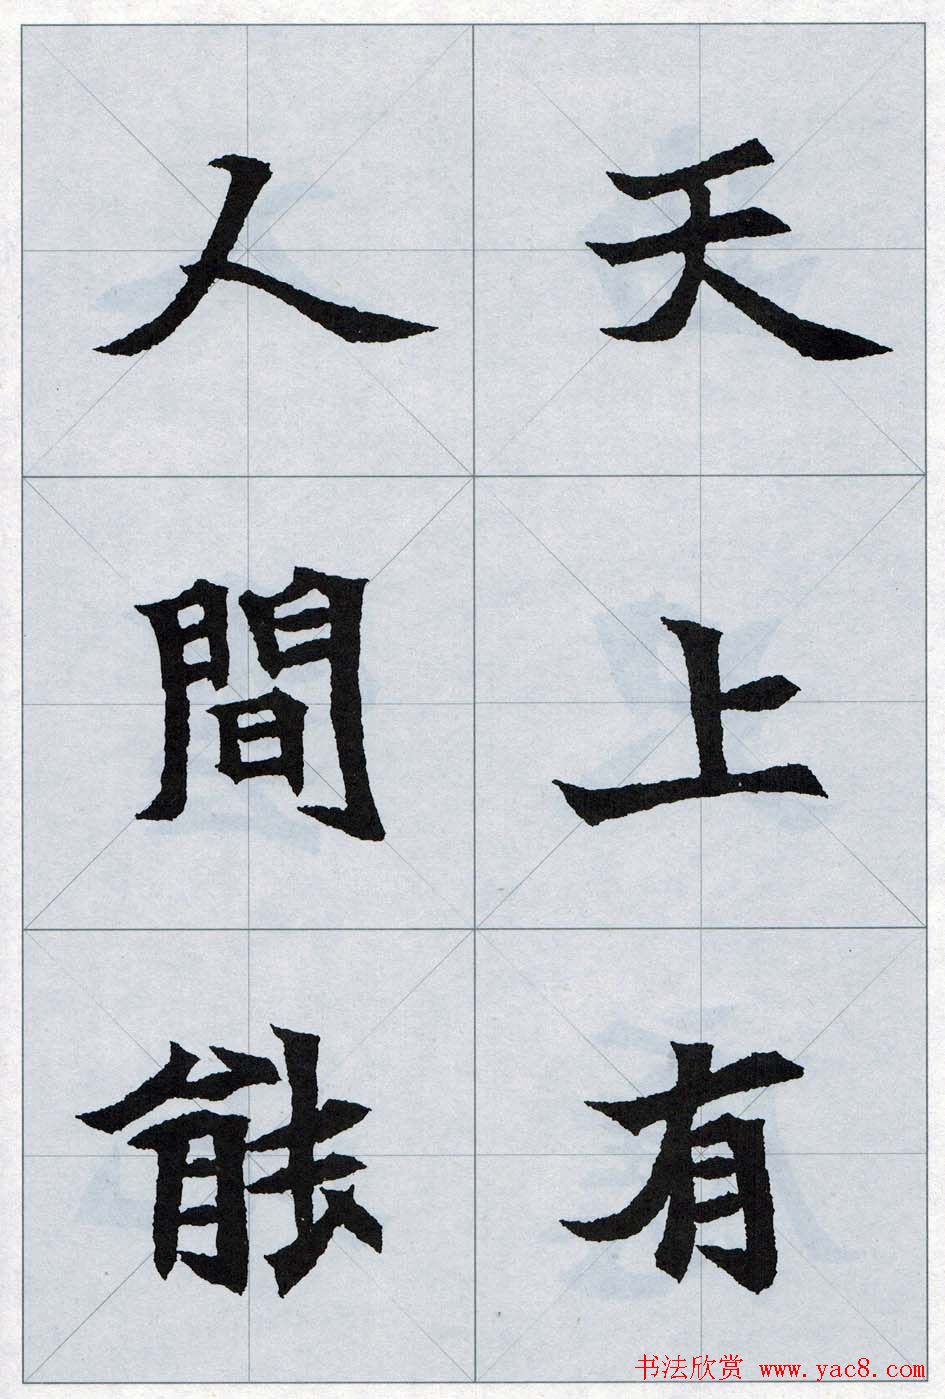 天上有
人間能
书法欣赏 www.yac8.com